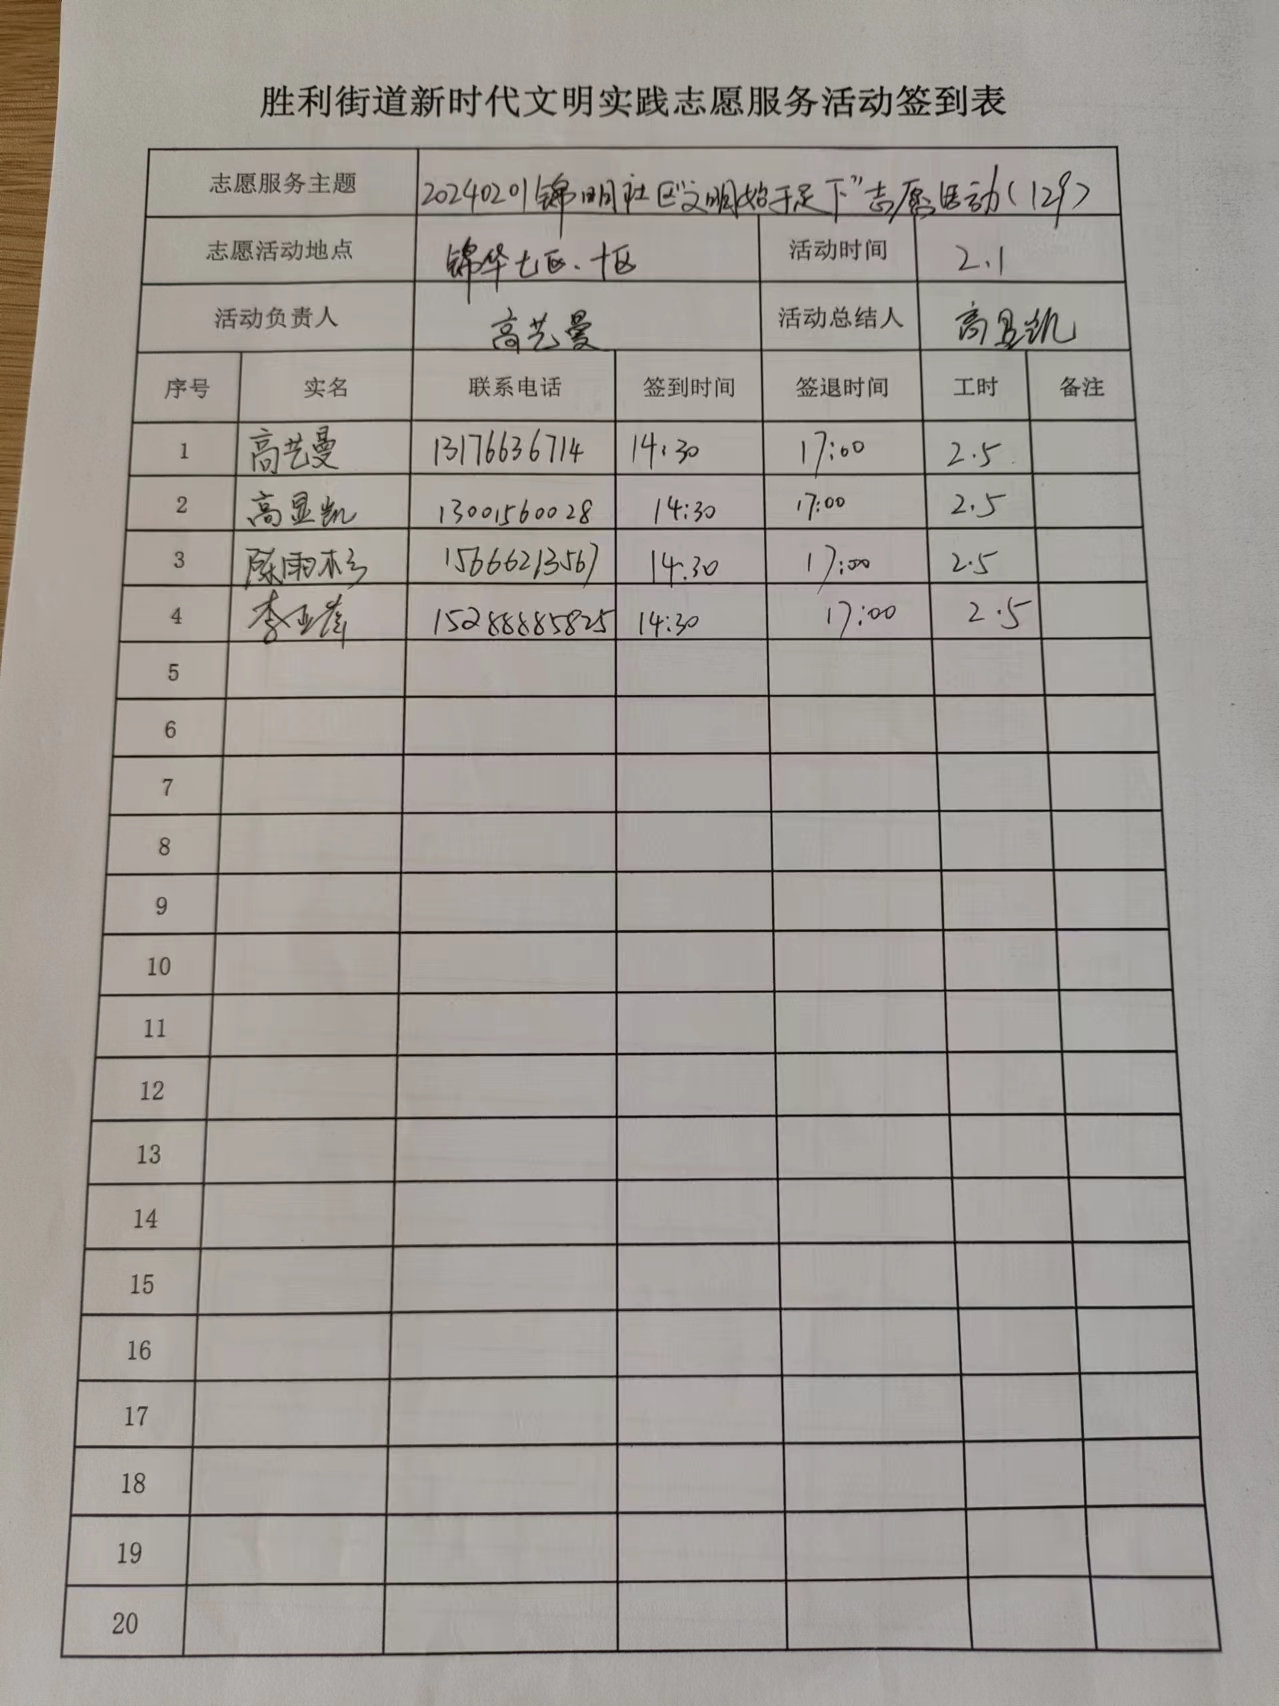 胜利街道新时代文明实践志愿服务活动签到表
志愿服务主题 20240201锦明社区"文明始于足下"志愿活动(129)
志愿活动地点 锦华七区、十区 活动时间 2.1
活动负责人 高艺曼 活动总结人 高显凯
序号 实名 联系电话 签到时间 签退时间 工时 备注
1 高艺曼 13176636714 14:30 17:00 2.5
2 高显凯 13001560028 14:30 17:00 2.5
3 陈雨杉 15666213567 14:30 17:00 2.5
4 李亚 15288885825 14:30 17:00 2.5
5
6
7
8
9
10
11
12
13
14
15
16
17
18
19
20